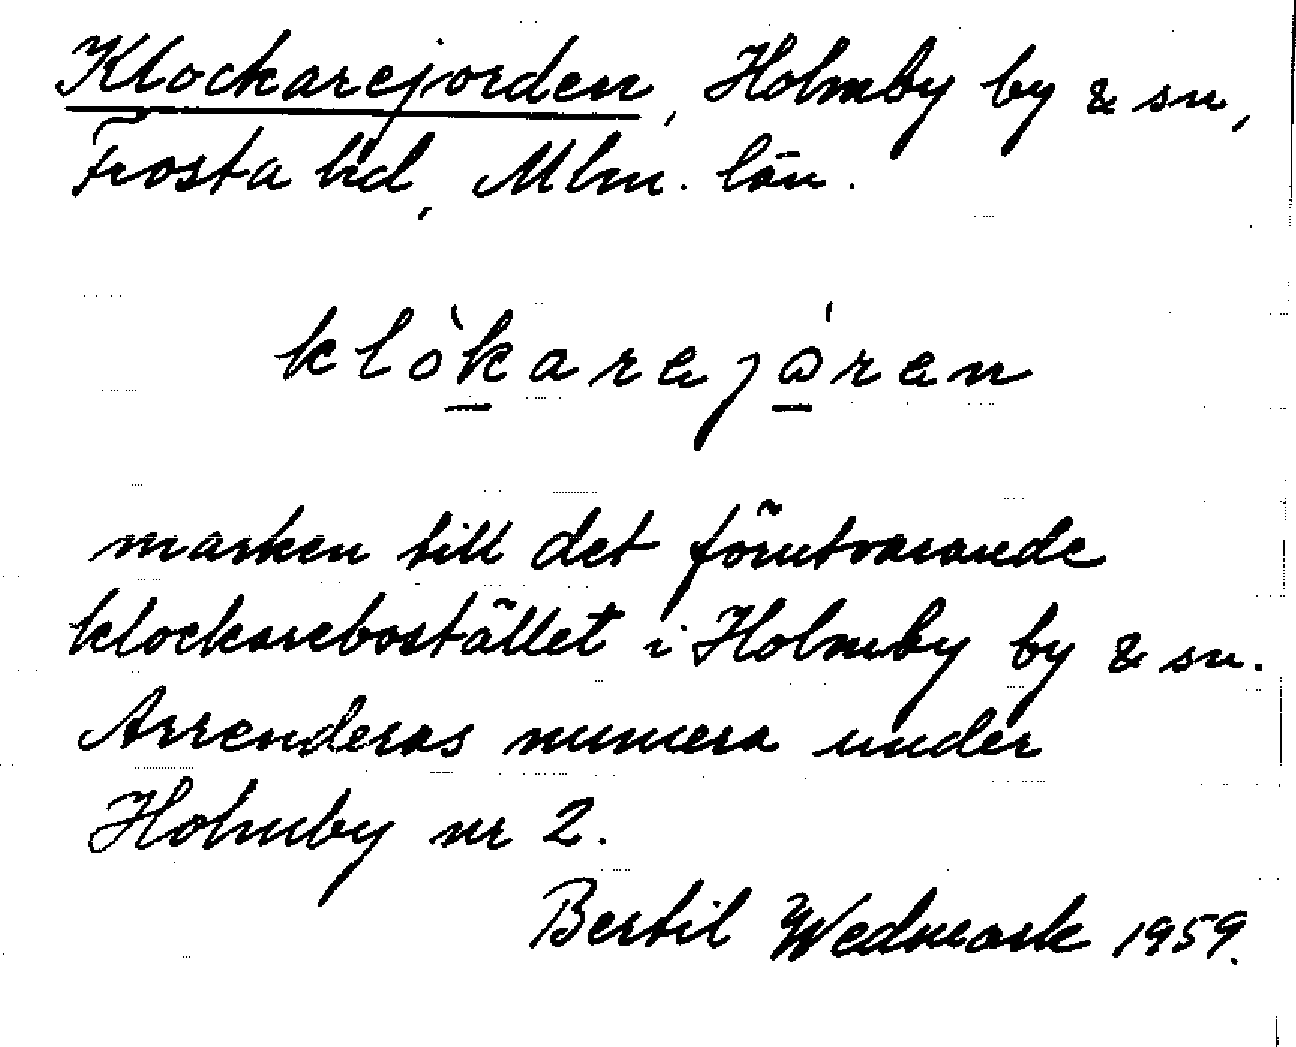 Klockarejorden, Holmby by & sn,
Frosta hd, Mlm. län.
klòkarejóren
marken till det förutvarande
klockarebostället i Holmby by & sn.
Arrenderas numera under
Holmby nr 2.
Bertil Wedmark 1959.